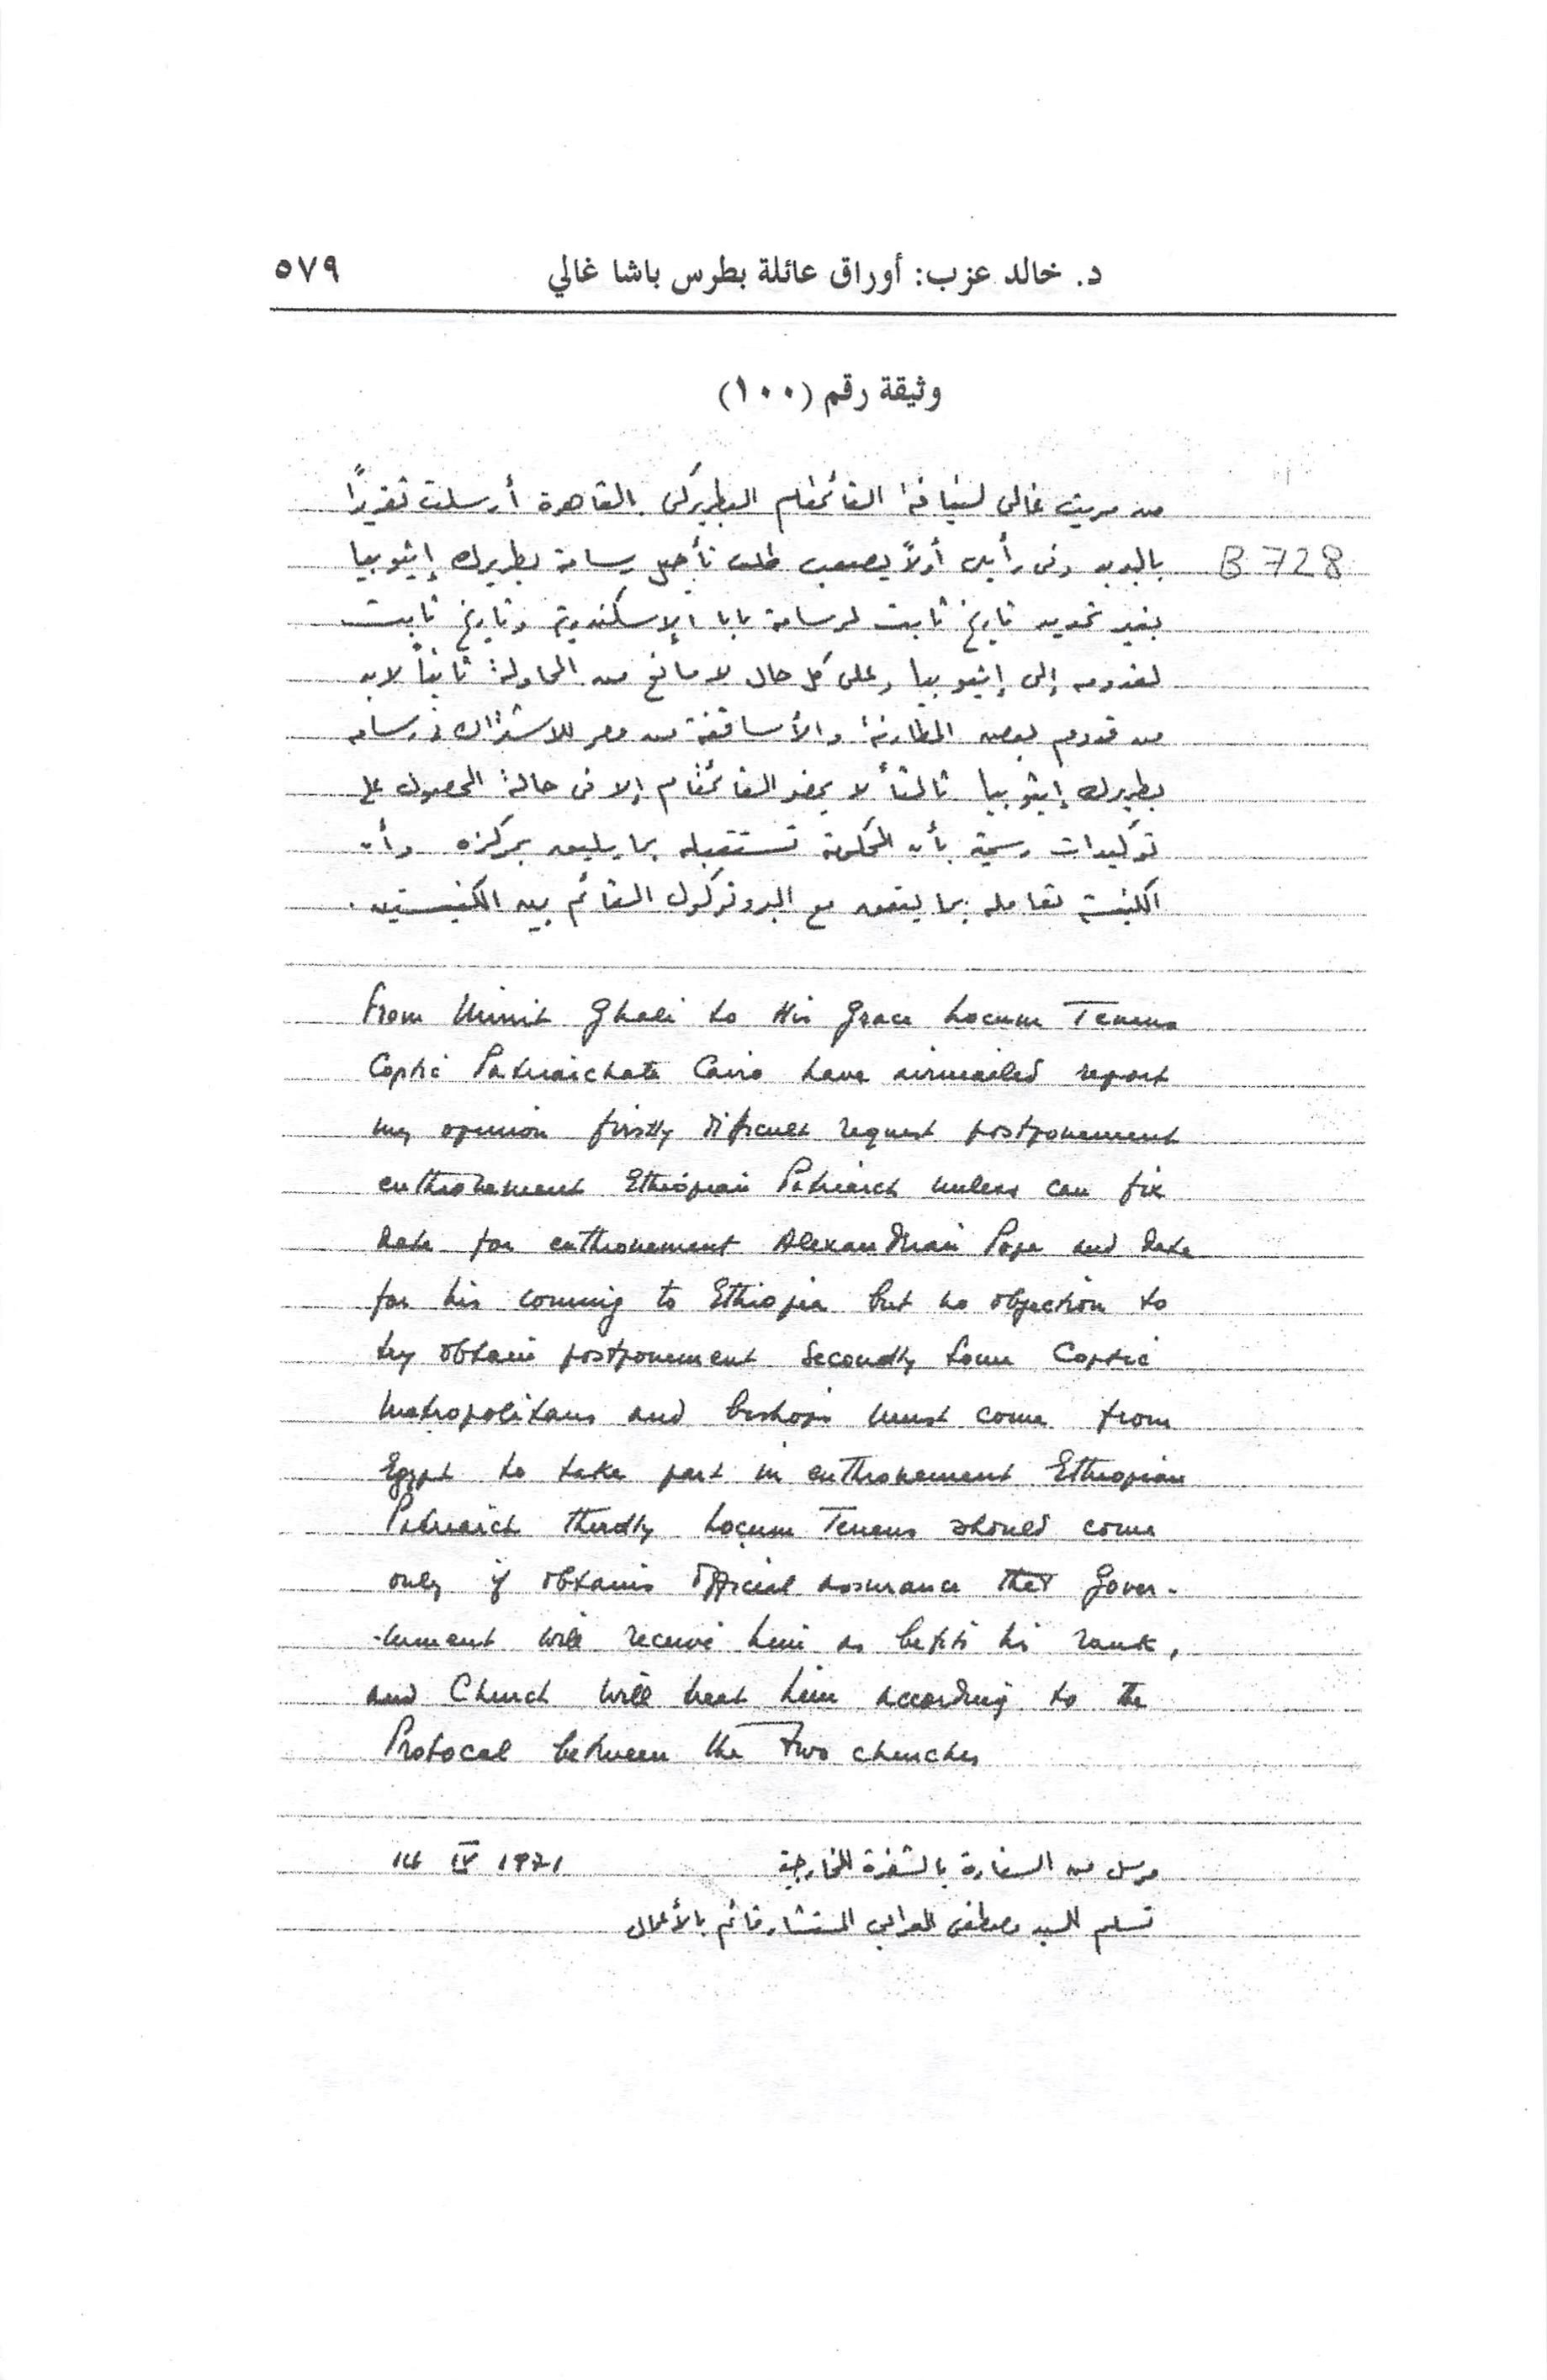 د. خالد عزب: أوراق عائلة بطرس باشا غالي ٥٧٩
وثيقة رقم (١٠٠)
من مريت غالى لنيافة القائمقام البطريركى بالقاهرة أرسلت تقريرًا
B 728 بالبريد وفى رأيى أولاً يصعب طلب تأجيل رسامة بطريرك إثيوبيا
بغير تحديد تاريخ ثابت لرسامة بابا الإسكندرية وتاريخ ثابت
لقدومه إلى إثيوبيا وعلى كل حال لا مانع من المحاولة ثانياً لابد
من قدوم بعض المطارنة والأساقفة من مصر للاشتراك فى رسامة
بطريرك إثيوبيا ثالثاً لا يحضر القائمقام إلا فى حالة الحصول على
توكيدات رسمية بأن الحكومة تستقبله بما يليق بمركزه وأن
الكنيسة تعامله بما يتفق مع البروتوكول القائم بين الكنيستين.
From Mirrit Ghali to His Grace Locum Tenens
Coptic Patriarchate Cairo have airmailed report
my opinion firstly difficult request postponement
enthronement Ethiopian Patriarch unless can fix
date for enthronement Alexandrian Pope and date
for his coming to Ethiopia but no objection to
try obtain postponement Secondly some Coptic
Metropolitans and bishops must come from
Egypt to take part in enthronement Ethiopian
Patriarch thirdly Locum Tenens should come
only if obtains official assurance that Gover-
-nment will receive him as befits his rank,
and Church will treat him according to the
Protocal between the Two churches
مرسل من السفارة بالشفرة للخارجية 14 IV 1971
تسلم السيد مصطفى المستشار قائم بالأعمال